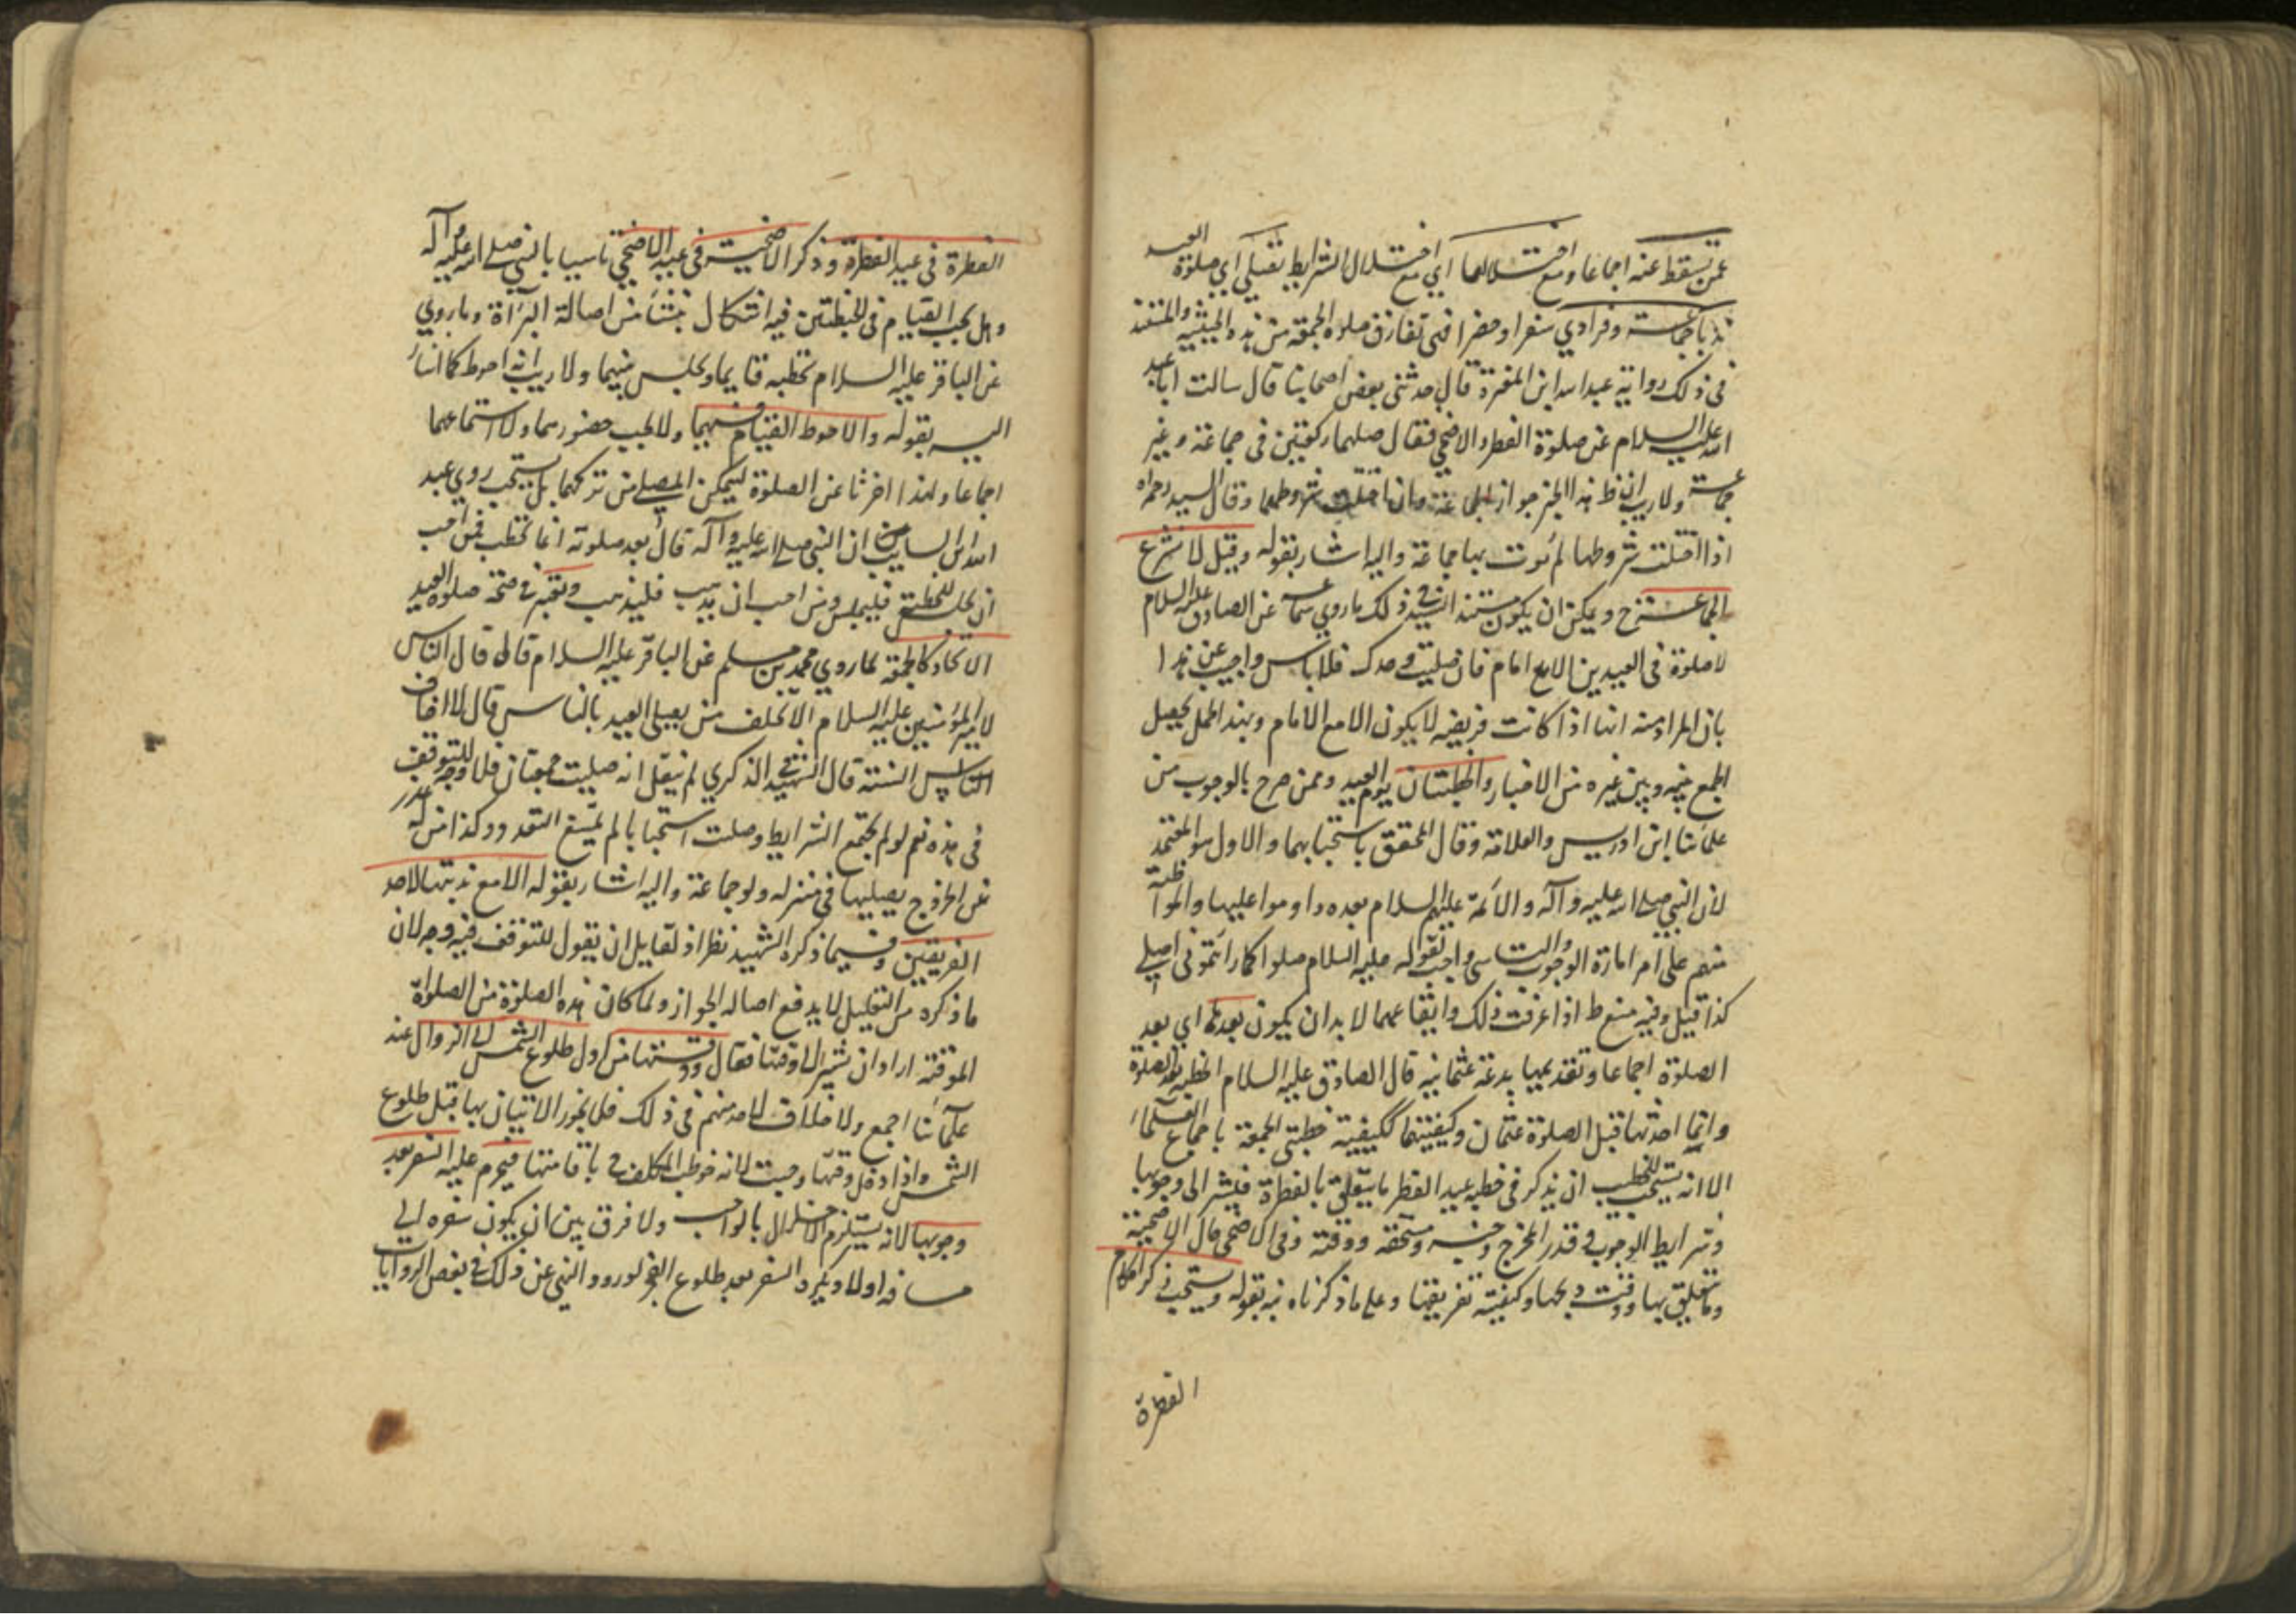 عمن تسقط عنه اجماعا ومع اختلالها اي مع اختلال الشرايط تصلي اي صلوة العيد
ندبا جماعة وفرادي سفرا وحضرا فهي تفارق صلوة الجمعة من هذه الحيثية والمستند
في ذلك رواية عبد الله ابن المغيرة قال حدثني بعض اصحابنا قال سالت ابا عبد
الله عليه السلام عن صلوة الفطر والاضحي فقال صلهما ركعتين في جماعة وغير
جماعة ولا ريب ان ظ هذا الخبر جواز الجماعة وان اختلت شروطها وقال السيد رحمه الله
اذا اختلت شروطها لم نوت بها جماعة واليه اشار بقوله وقيل لا تشرع
الجماعة ح ويمكن ان يكون مستند السيد في ذلك ما روي سماعة عن الصادق عليه السلام
لا صلوة في العيدين الا مع امام فان صليت وحدك فلا باس واجيب عن هذا
بان المراد منه انها اذا كانت فريضه لا يكون الا مع الامام وبهذا الحمل يحصل
الجمع بينه وبين غيره من الاخبار والخطبتان يوم العيد وممن صرح بالوجوب من
علمائنا ابن ادريس والعلامة وقال المحقق باستحبابهما والاول هو المعتمد
لان النبي صلى الله عليه وآله والائمة عليهم السلام بعده داوموا عليها والمواظبة
منهم على امر امارة الوجوب والتاسي واجب لقوله عليه السلام صلوا كما رائتموني اصلي
كذا قيل وفيه منع ط اذا عرفت ذلك وايقاعهما لا بد ان يكون بعدها اي بعد
الصلوة اجماعا وتقديمها بدعة عثمانيه قال الصادق عليه السلام الخطبة بعد الصلوة
وانما احدثها قبل الصلوة عثمان وكيفيتهما ككيفية خطبتي الجمعة باجماع العلماء
الا انه يستحب للخطيب ان يذكر في خطبة عيد الفطر ما يتعلق بالفطرة فيشير الى وجوبها
وشرايط الوجوب في قدر المخرج وجنسه ومستحقه ووقته وفي الاضحي حال الاضحية
وما يتعلق بها ووقت ذبحها وكيفية تفريقها وعلى ما ذكرناه نبه بقوله ويستحب ذكر احكام
الفطرة
الفطرة في عيد الفطرة وذكر الاضحية في عيد الاضحي تاسيا بالنبي صلى الله عليه وآله
وهل يجب القيام في الخطبتين فيه اشكال ينشا من اصالة البرآة وما روي
عن الباقر عليه السلام يخطب قايما ويجلس بينهما ولا ريب انه احوط كما اشار
اليه بقوله والاحوط القيام فيهما ولا يجب حضورهما ولا استماعهما
اجماعا ولهذا اخرتا عن الصلوة ليتمكن المصلي من تركهما بل يستحب روي عبد
الله ابن السايب ان النبي صلى الله عليه وآله قال بعد صلوته انا نخطب فمن احب
ان يجلس للخطبة فليجلس ومن احب ان يذهب فليذهب ويعتبر في صحة صلوة العيد
الاتحاد كالجمعة لما روي محمد بن مسلم عن الباقر عليه السلام قال قال الناس
لامير المؤمنين عليه السلام الا تخلف من يصلي العيد بالناس قال لا اخالف
السنة قال الشهيد في الذكري لم ينقل انه صليت جمعتان فلا وجه للتوقف
في هذه نعم لو لم يجتمع الشرايط وصلت استحبابا لم يمنع التعدد وكذا من له عذر
عن الخروج يصليها في منزله ولو جماعة واليه اشار بقوله الا مع ندبتها لاحد
الفريقين وفيما ذكره الشهيد نظر اذ لقايل ان يقول للتوقف فيه وجه لان
ما ذكره من التعليل لا يدفع اصالة الجواز ولما كان هذه الصلوة من الصلواة
الموقتة اراد ان يشير الى وقتها فقال ووقتها من اول طلوع الشمس الى الزوال عند
علمآئنا اجمع ولا خلاف لاحد منهم في ذلك فلا يجوز الاتيان بها قبل طلوع
الشمس واذا دخل وقتها وجبت لانه خوطب المكلف ح باقامتها فيحرم عليه السفر بعد
وجوبها لانه يستلزم الاخلال بالواجب ولا فرق بين ان يكون سفره الى
مسافة اولا ويكره السفر بعد طلوع الفجر لورود النهي عن ذلك في بعض الروايات